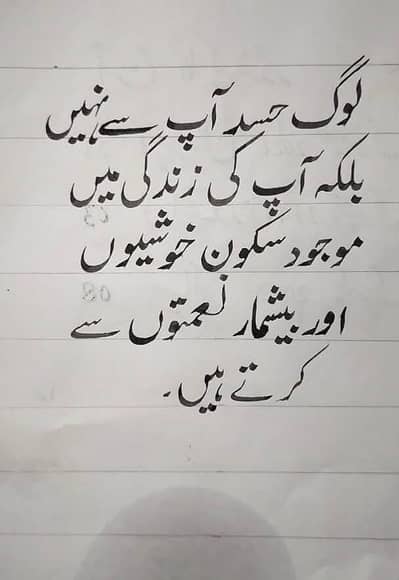 لوگ حسد آپ سے نہیں
بلکہ آپ کی زندگی میں
موجود سکون خوشیوں
اور بیشمار نعمتوں سے
کرتے ہیں۔